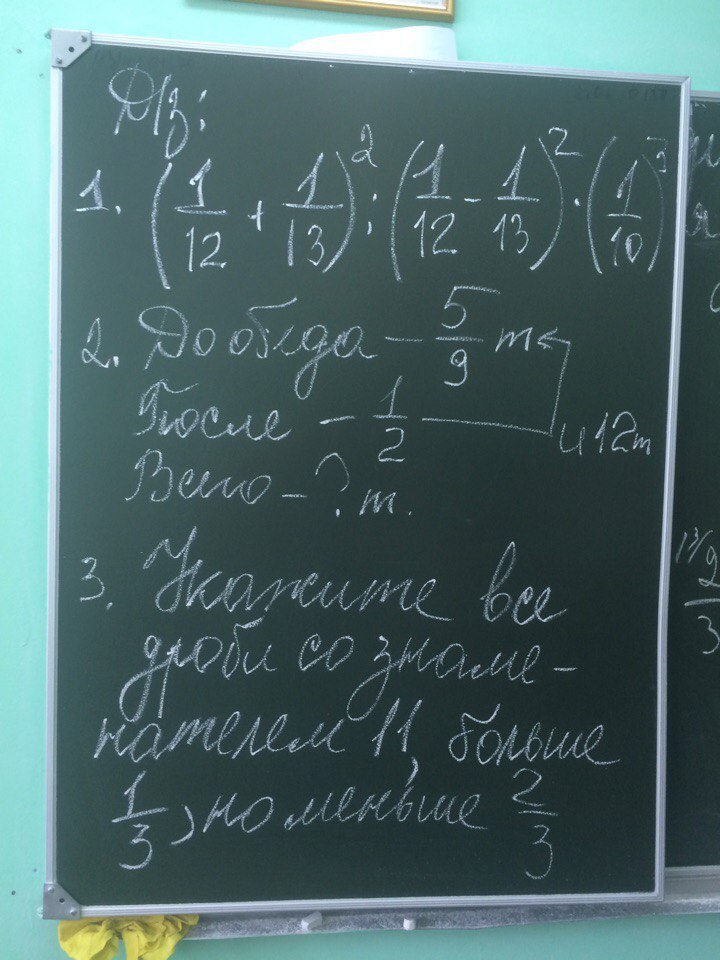 Д/з:
1. (1/12 + 1/13)² : (1/12 - 1/13)² · (1/10)³
2. До обеда - 5/9 т
После - 1/2 и 12т
Всего - ? т.
3. Укажите все
дроби со знаме-
нателем 11, больше
1/3, но меньше 2/3
2/3